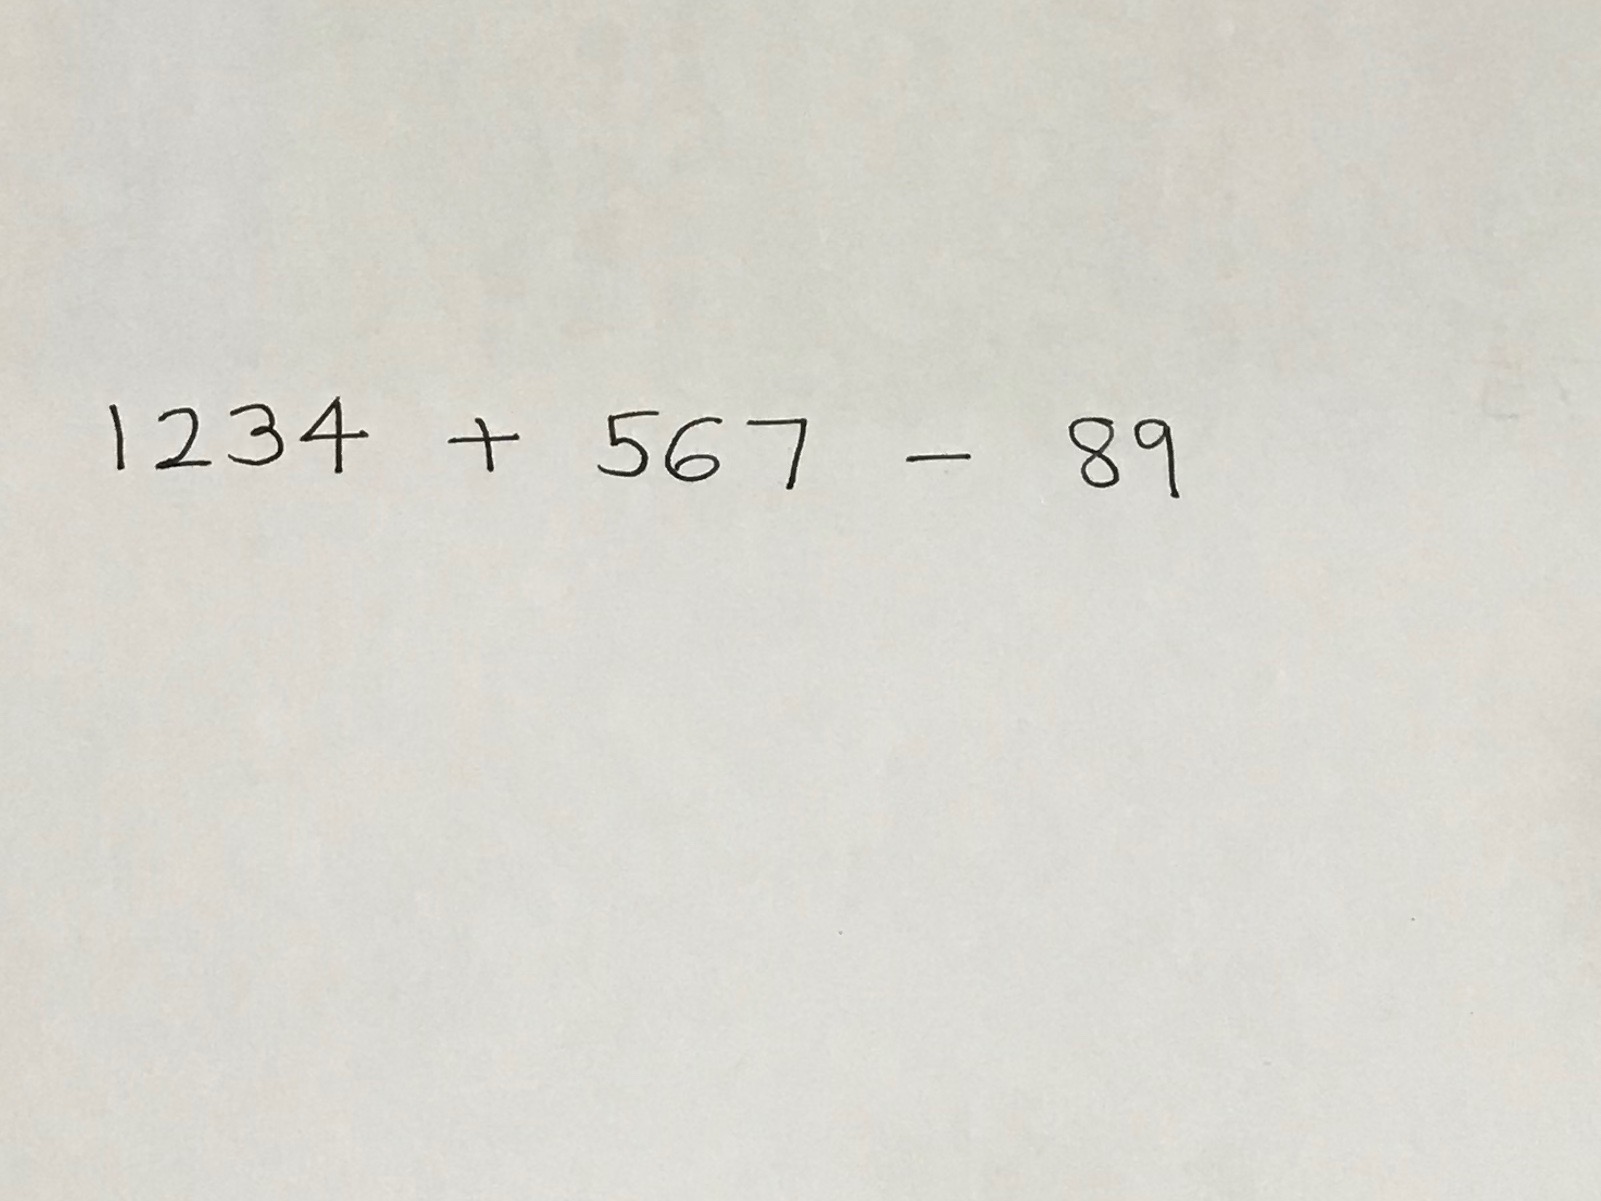 1234 + 567 - 89